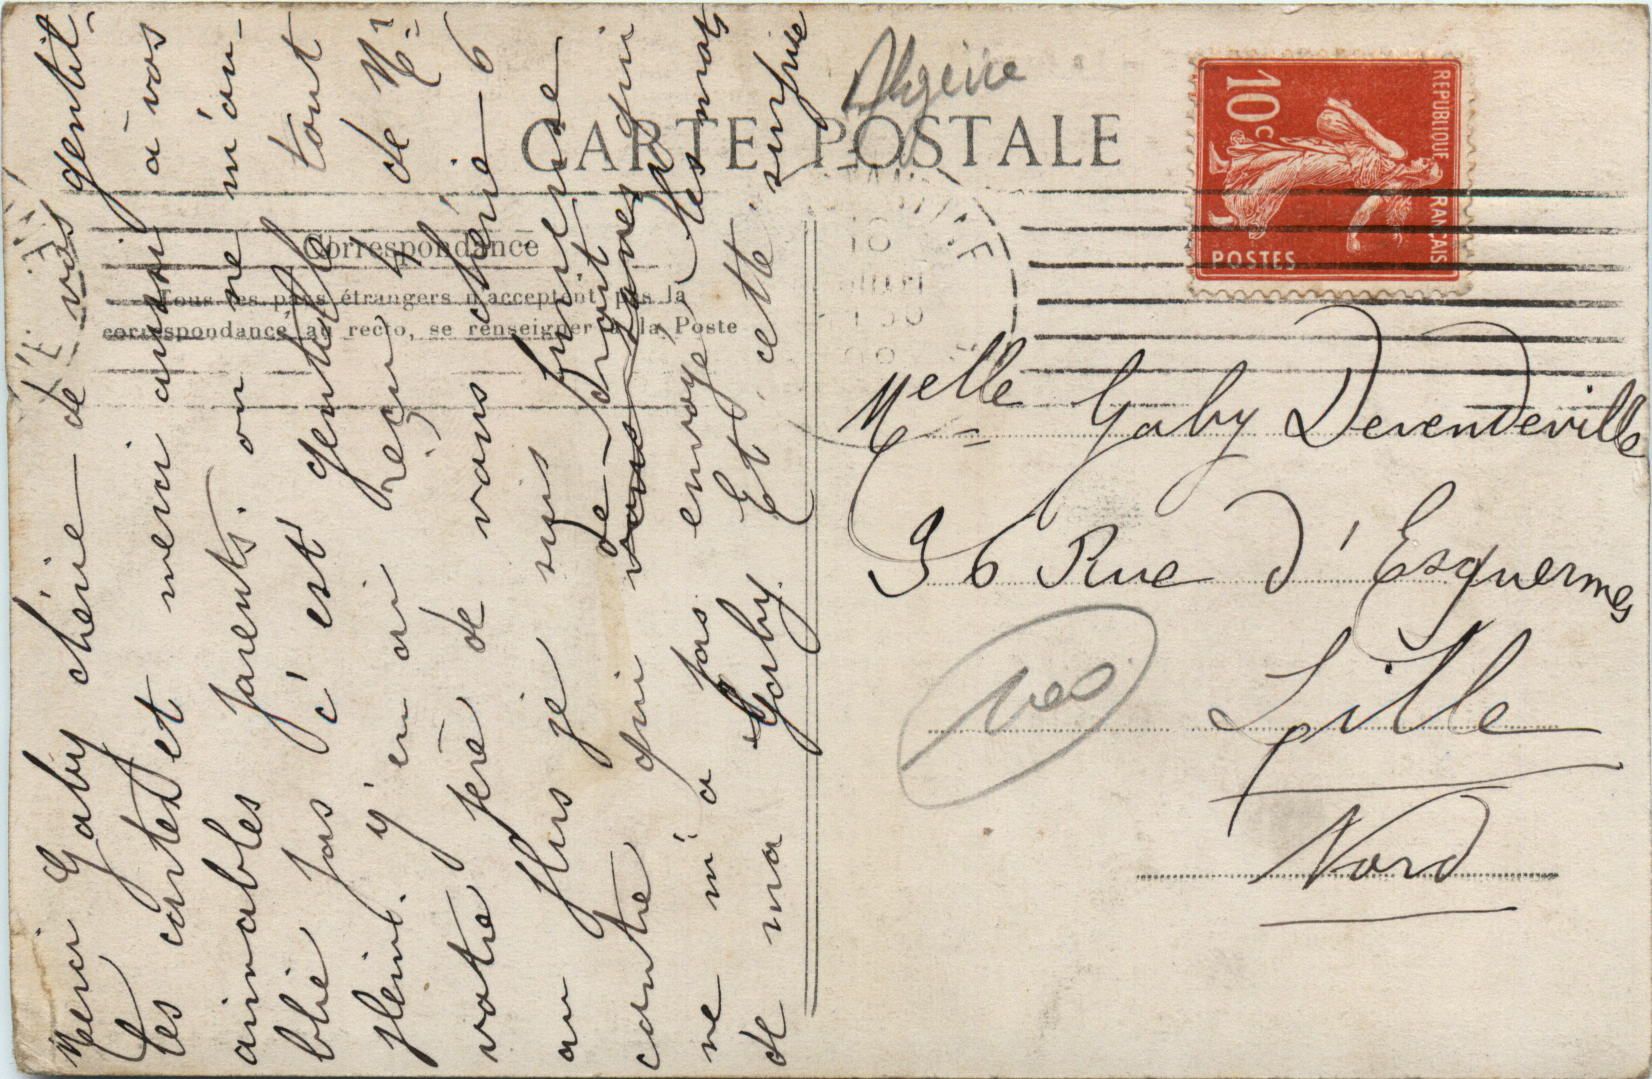 Algérie
CARTE POSTALE
Correspondance
Tous les pays étrangers n'acceptent pas la
correspondance au recto, se renseigner à la Poste
REPUBLIQUE FRANÇAISE
10c
POSTES
Melle Gaby Devendeville
36 Rue d'Esquermes
Lille
Nord
Merci Gaby chérie de vos gentil-
les cartes et merci aussi à vos
aimables parents. on ne m'ou-
blie pas c'est gentil tout
plein. j'en ai reçu 4 de Mr
votre père de vous chérie 6
au plus je suis furieuse
contre qui de droit
ne m'a pas envoyé les mots
de ma Gaby. Et cette